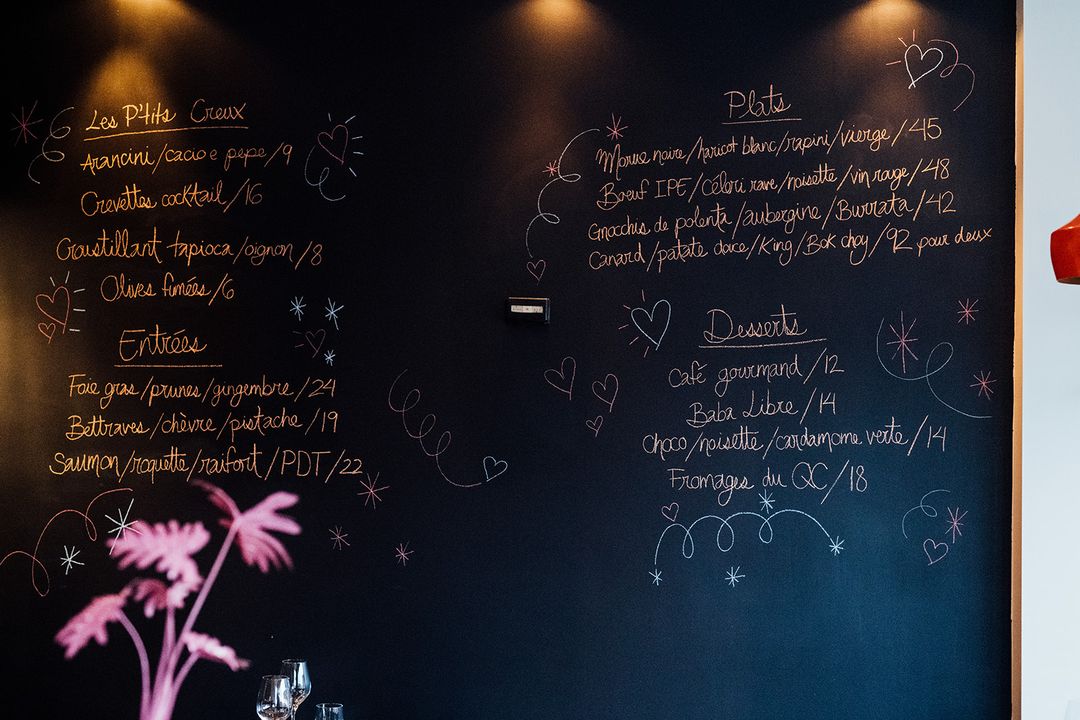 Les P'tits Creux
Arancini/cacio e pepe/9
Crevettes cocktail/16
Croustillant tapioca/oignon/8
Olives fumées/6
Entrées
Foie gras/prunes/gingembre/24
Bettraves/chèvre/pistache/19
Saumon/roquette/raifort/PDT/22
Plats
Morue noire/haricot blanc/rapini/vierge/45
Boeuf IPE/Céleri rave/noisette/vin rouge/48
Gnocchis de polenta/aubergine/Burrata/42
Canard/patate douce/King/Bok choy/92 pour deux
Desserts
Café gourmand/12
Baba Libre/14
Choco/noisette/cardamome verte/14
Fromages du QC/18